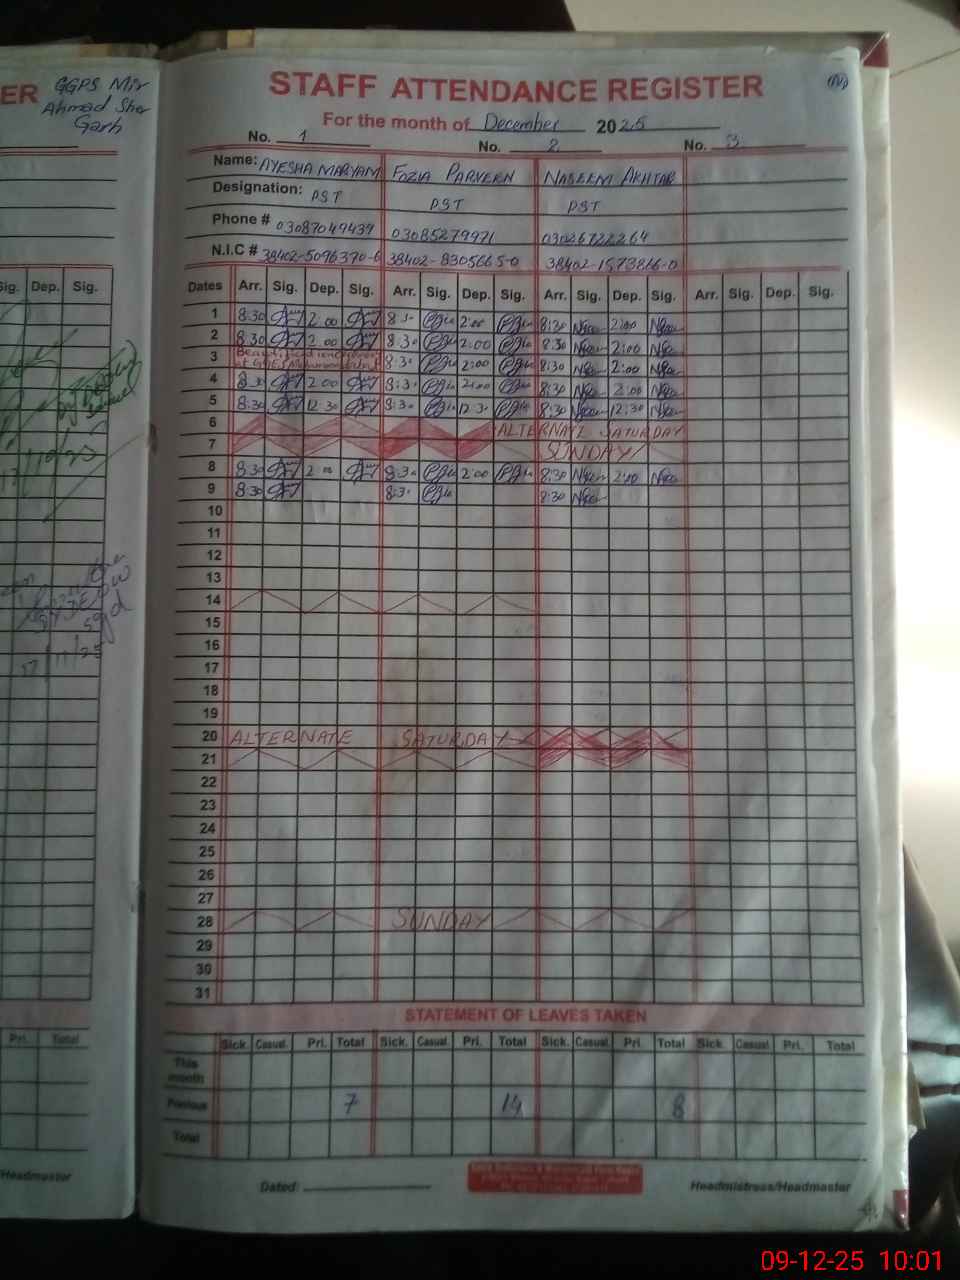 ER
GGPS Mir
Ahmad Sher
Garh
STAFF ATTENDANCE REGISTER
For the month of December 2025
No. 1 No. 2 No. 3
Name: AYESHA MARYAM FOZIA PARVEEN NASEEM AKHTAR
Designation: PST PST PST
Phone # 03087049439 03085279971 03026722264
N.I.C # 38402-5096370-6 38402-8305665-0 38402-1573816-0
Sig. Dep. Sig.
Dates Arr. Sig. Dep. Sig. Arr. Sig. Dep. Sig. Arr. Sig. Dep. Sig. Arr. Sig. Dep. Sig.
1 8:30 2:00 8:30 2:00 8:30 2:00
2 8:30 2:00 8:30 2:00 8:30 2:00
3 8:30 2:00 8:30 2:00
4 8:30 2:00 8:30 2:00 8:30 2:00
5 8:30 12:30 8:30 12:30 8:30 12:30
6 ALTERNATE SATURDAY
7 SUNDAY
8 8:30 2:00 8:30 2:00 8:30 2:00
9 8:30 8:30 8:30
10
11
12
13
14
15
16
17
18
19
20 ALTERNATE SATURDAY
21
22
23
24
25
26
27
28 SUNDAY
29
30
31
STATEMENT OF LEAVES TAKEN
Pri. Total
Sick. Casual. Pri. Total Sick. Casual. Pri. Total Sick. Casual. Pri. Total Sick. Casual. Pri. Total
This month
Previous 7 14 8
Total
/Headmaster
Dated: Headmistress/Headmaster
09-12-25 10:01